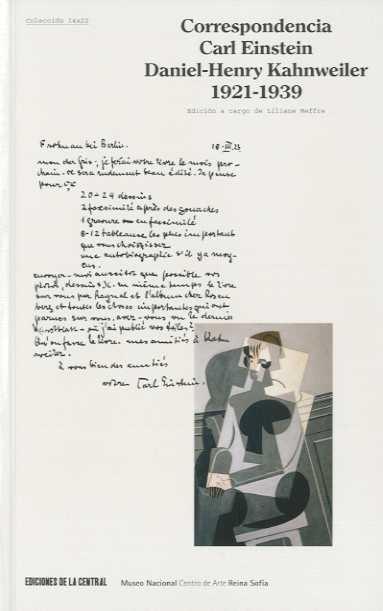 Colección 14x22
Correspondencia
Carl Einstein
Daniel-Henry Kahnweiler
1921-1939
Edición a cargo de Liliane Meffre
Frohnau bei Berlin. 18-III.23
mon cher Gris, je ferai votre livre le mois pro-
chain. ce sera rudement beau édité. Je pense
pour
20-24 dessins
2 facsimilé après des gouaches
1 gravure en facsimilé
8-12 tableaux les plus important
que vous choisissez
une autobiographie s'il y a moy-
en.
envoyez-moi aussitôt que possible vos
photos, dessins etc. en même temps le livre
sur vous par Raynal et l'album chez Rosen
berg et toutes les choses importantes qui ont
parues sur vous. avez-vous vu le dernier
où j'ai publié vos toiles?
faire le livre. mes amitiés à
à vous bien des amitiés
votre Carl Einstein.
EDICIONES DE LA CENTRAL Museo Nacional Centro de Arte Reina Sofía